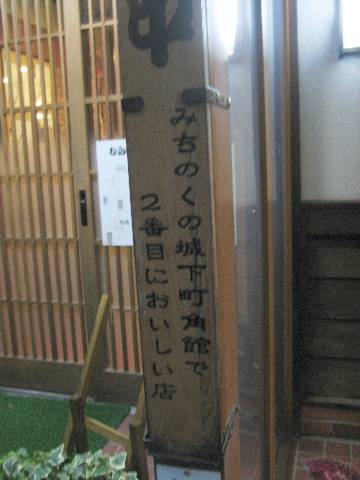 中
みちのくの城下町角館で
2番目においしい店